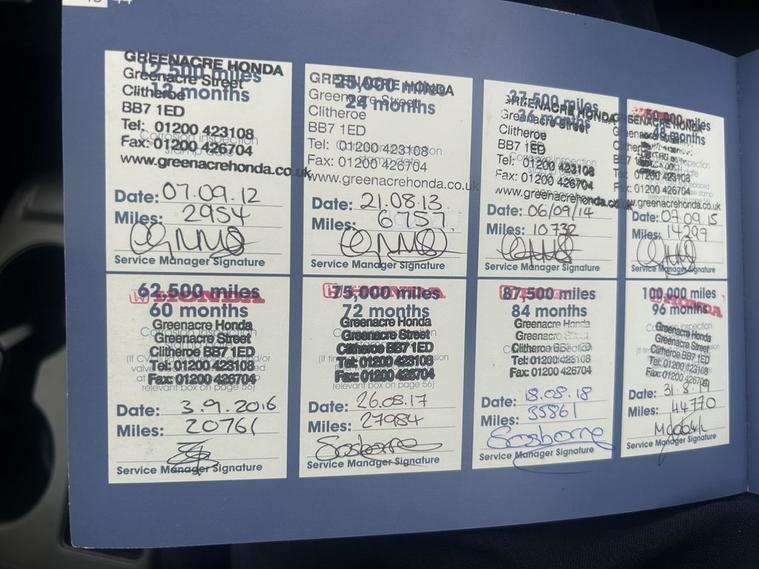 GREENACRE HONDA
12,500 miles
Greenacre Street
12 months
Clitheroe
BB7 1ED
Tel: 01200 423108
Fax: 01200 426704
www.greenacrehonda.co.uk
Date: 07.09.12
Miles: 2954
Service Manager Signature
GREENACRE HONDA
25,000 miles
Greenacre Street
24 months
Clitheroe
BB7 1ED
Tel: 01200 423108
Fax: 01200 426704
www.greenacrehonda.co.uk
Date: 21.08.13
Miles: 6757
Service Manager Signature
37,500 miles
GREENACRE HONDA
36 months
Greenacre Street
Clitheroe
BB7 1ED
Tel: 01200 423108
Fax: 01200 426704
www.greenacrehonda.co.uk
Date: 06/09/14
Miles: 10732
Service Manager Signature
50,000 miles
GREENACRE HONDA
48 months
Fax: 01200 426704
www.greenacrehonda.co.uk
Date: 07.09.15
Miles: 14297
Service Manager Signature
62,500 miles
HONDA
60 months
Greenacre Honda
Greenacre Street
Clitheroe BB7 1ED
Tel: 01200 423108
Fax: 01200 426704
relevant box on page 56)
Date: 3.9.2016
Miles: 20761
Service Manager Signature
75,000 miles
HONDA
72 months
Greenacre Honda
Greenacre Street
Clitheroe BB7 1ED
Tel: 01200 423108
Fax: 01200 426704
relevant box on page 56)
Date: 26.08.17
Miles: 27984
Sosborne
Service Manager Signature
87,500 miles
HONDA
84 months
Greenacre Honda
Greenacre Street
Clitheroe BB7 1ED
Tel: 01200 423108
Fax: 01200 426704
Date: 18.08.18
Miles: 35861
Sosborne
Service Manager Signature
100,000 miles
HONDA
96 months
Greenacre Honda
Greenacre Street
Clitheroe BB7 1ED
Tel: 01200 423108
Fax: 01200 426704
Date: 31.8.19
Miles: 44770
Service Manager Signature